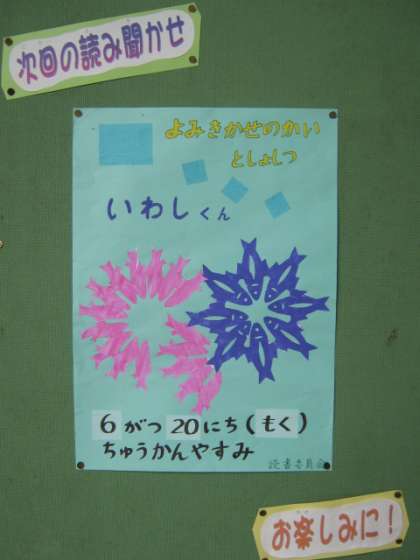 次回の読み聞かせ
よみきかせのかい
としょしつ
いわしくん
6がつ20にち(もく)
ちゅうかんやすみ
読書委員会
お楽しみに!